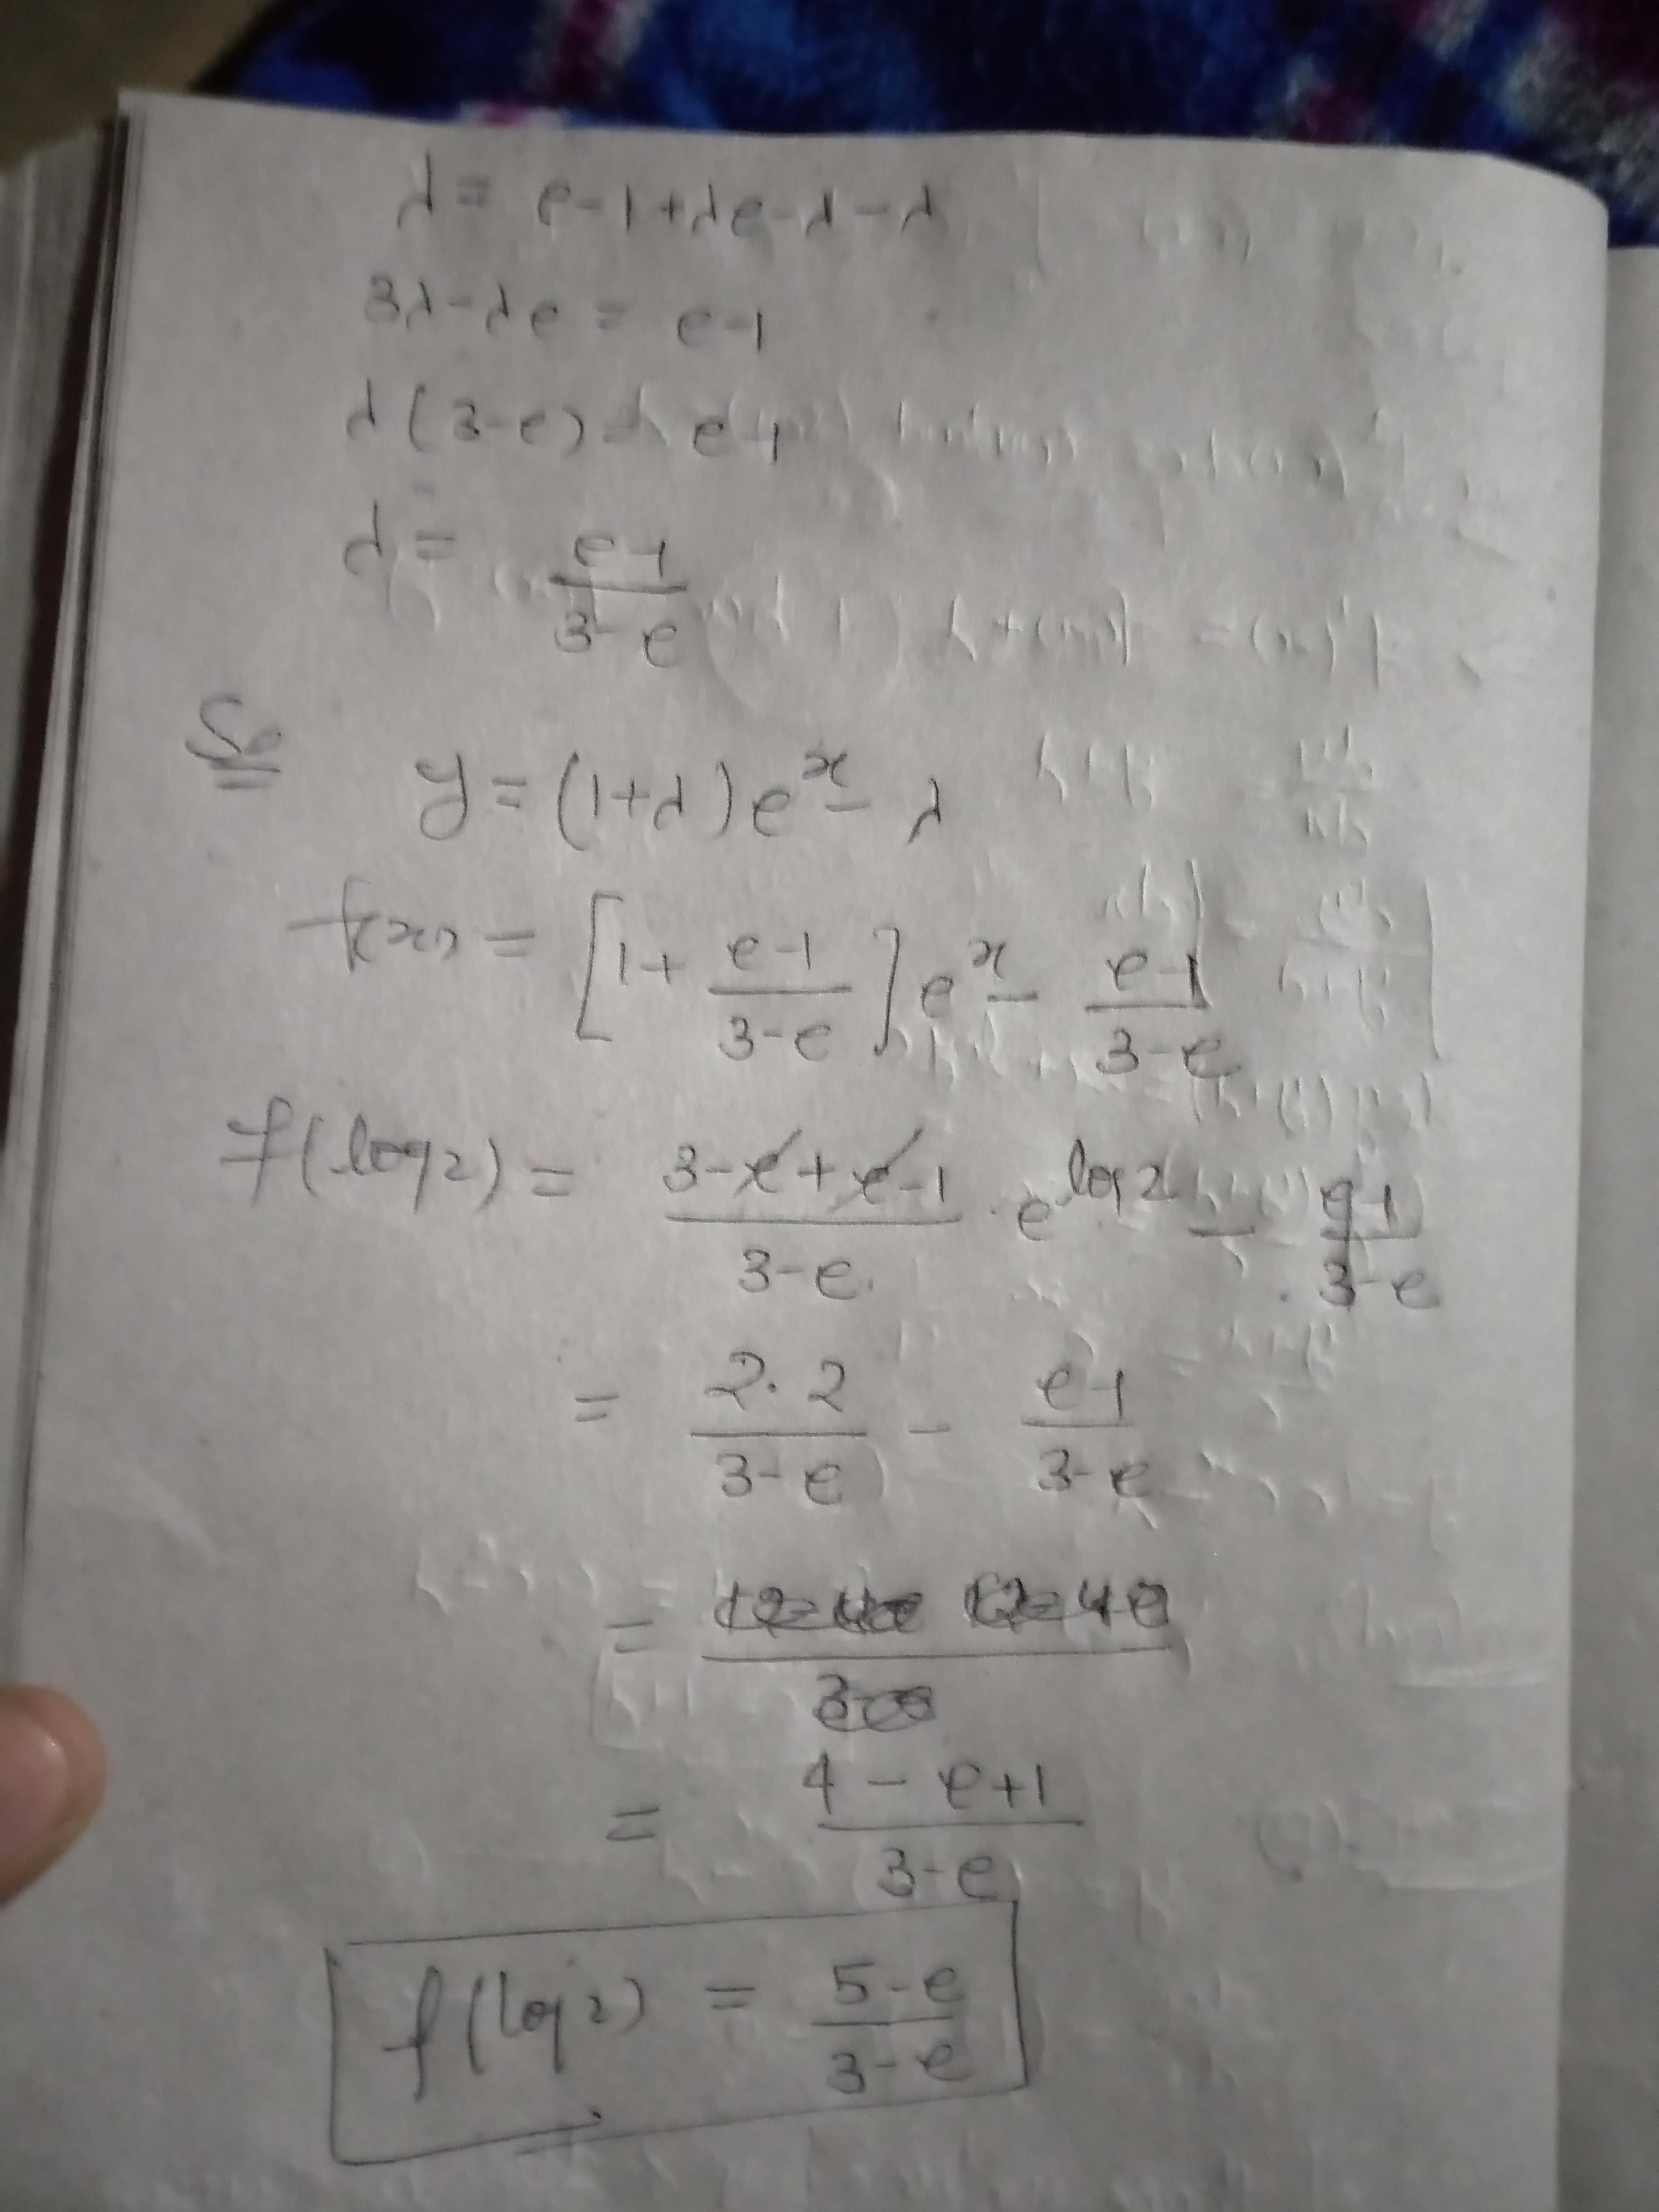 λ = e-1+λe-λ-λ
3λ-λe = e-1
λ(3-e) = e-1
λ = \frac{e-1}{3-e}
So y = (1+λ)e^x - λ
f(x) = [1+ \frac{e-1}{3-e}] e^x - \frac{e-1}{3-e}
f(log2) = \frac{3-e+e-1}{3-e} . e^{log2} - \frac{e-1}{3-e}
= \frac{2.2}{3-e} - \frac{e-1}{3-e}
=
= \frac{4-e+1}{3-e}
f(log2) = \frac{5-e}{3-e}